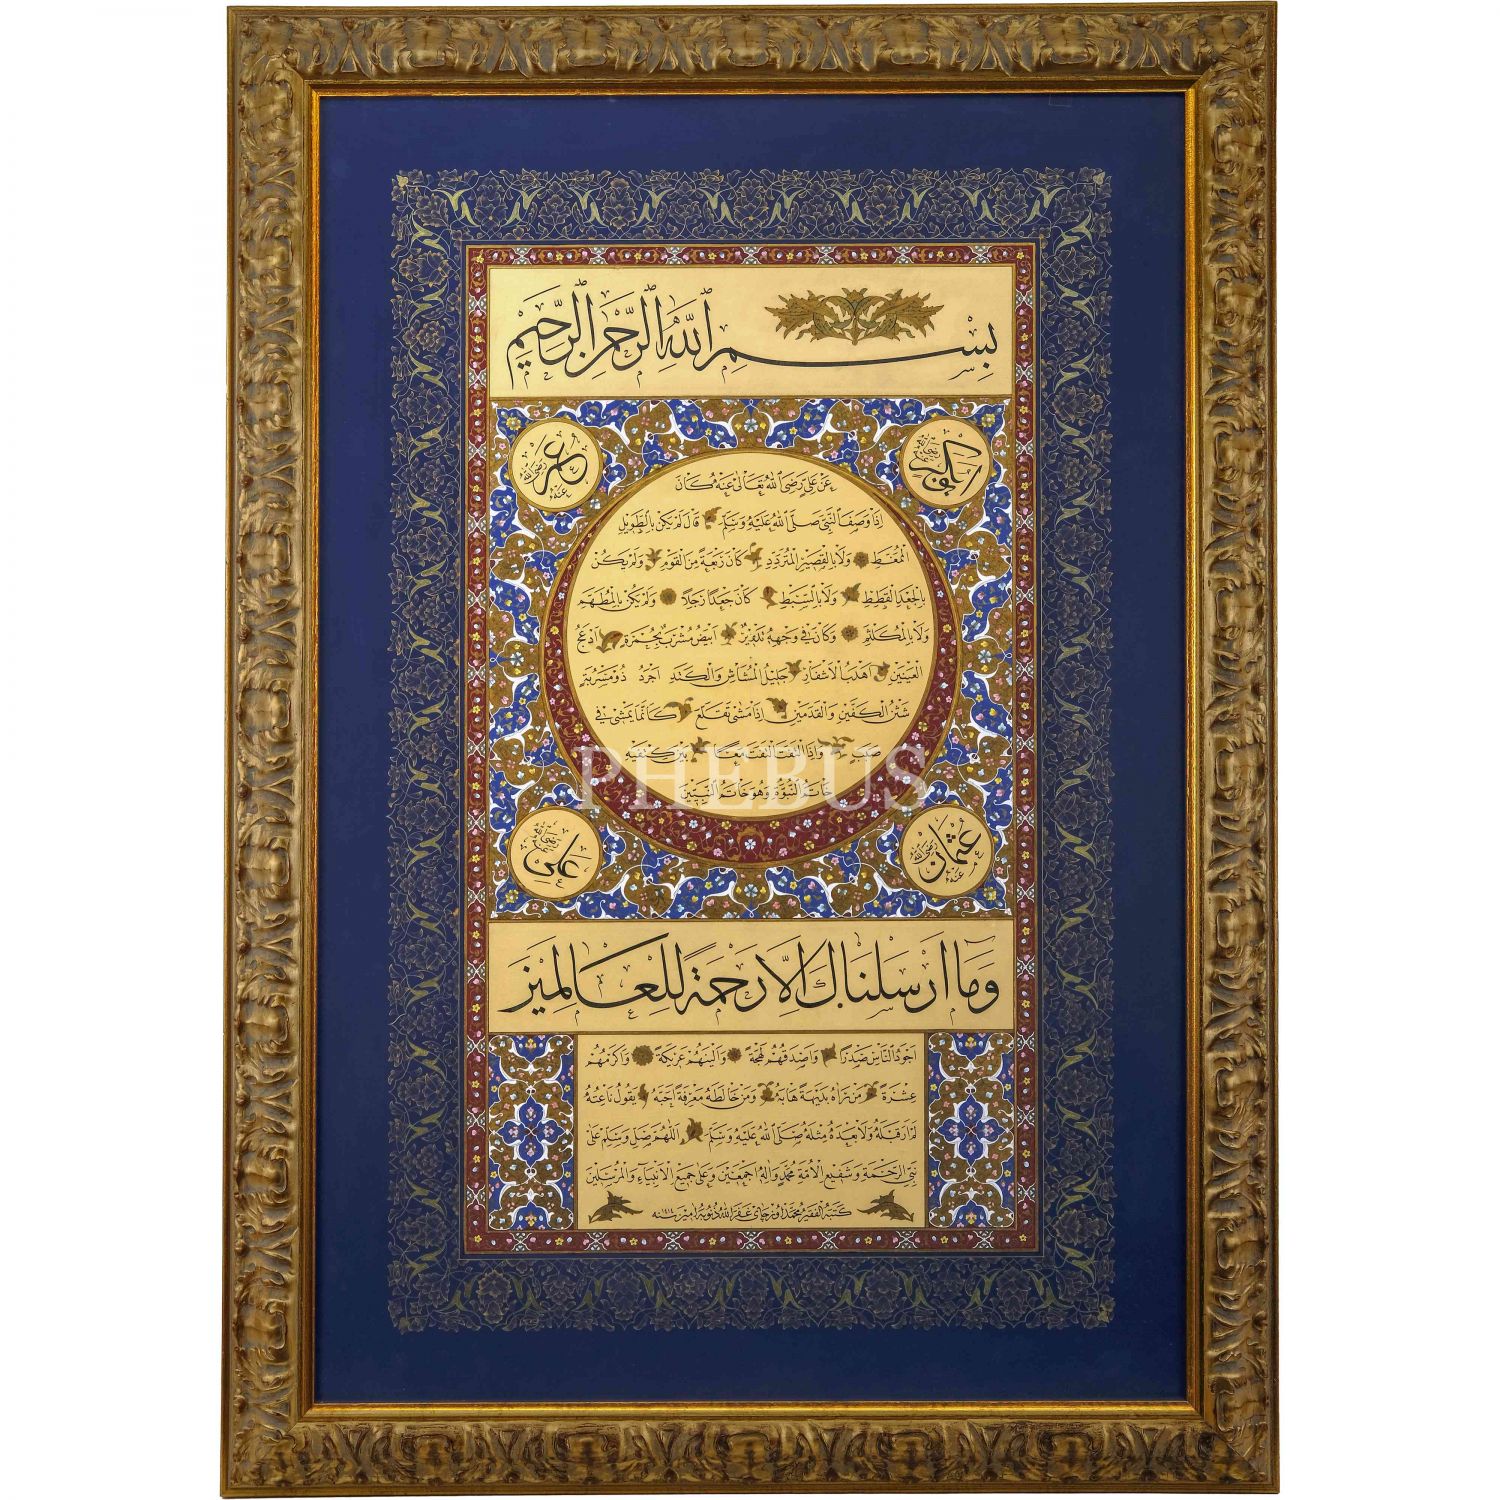 بِسْمِ اللّٰهِ الرَّحْمٰنِ الرَّحِيمِ
ابوبكر رضي الله عنه
عمر رضي الله عنه
عَنْ عَلِيٍّ رَضِيَ اللّٰهُ تَعَالٰى عَنْهُ كَانَ
اِذَا وَصَفَ النَّبِيَّ صَلَّى اللّٰهُ عَلَيْهِ وَسَلَّمَ قَالَ لَمْ يَكُنْ بِالطَّوِيلِ
الْمُمَّغَطِ وَلَا بِالْقَصِيرِ الْمُتَرَدِّدِ كَانَ رَبْعَةً مِنَ الْقَوْمِ وَلَمْ يَكُنْ
بِالْجَعْدِ الْقَطِطِ وَلَا بِالسَّبِطِ كَانَ جَعْدًا رَجِلًا وَلَمْ يَكُنْ بِالْمُطَهَّمِ
وَلَا بِالْمُكَلْثَمِ وَكَانَ فِي وَجْهِهِ تَدْوِيرٌ اَبْيَضُ مُشْرَبٌ بِحُمْرَةٍ اَدْعَجُ
الْعَيْنَيْنِ اَهْدَبُ الْاَشْفَارِ جَلِيلُ الْمُشَاشِ وَالْكَتَدِ اَجْرَدُ ذُو مَسْرُبَةٍ
شَثْنُ الْكَفَّيْنِ وَالْقَدَمَيْنِ اِذَا مَشٰى تَقَلَّعَ كَاَنَّمَا يَمْشِي فِي
صَبَبٍ وَاِذَا الْتَفَتَ الْتَفَتَ مَعًا بَيْنَ كَتِفَيْهِ
خَاتَمُ النُّبُوَّةِ وَهُوَ خَاتَمُ النَّبِيِّينَ
PHEBUS
عثمان رضي الله عنه
علي رضي الله عنه
وَمَا اَرْسَلْنَاكَ اِلَّا رَحْمَةً لِلْعَالَمِينَ
اَجْوَدُ النَّاسِ صَدْرًا وَاَصْدَقُهُمْ لَهْجَةً وَاَلْيَنُهُمْ عَرِيكَةً وَاَكْرَمُهُمْ
عِشْرَةً مَنْ رَاٰهُ بَدِيهَةً هَابَهُ وَمَنْ خَالَطَهُ مَعْرِفَةً اَحَبَّهُ يَقُولُ نَاعِتُهُ
لَمْ اَرَ قَبْلَهُ وَلَا بَعْدَهُ مِثْلَهُ صَلَّى اللّٰهُ عَلَيْهِ وَسَلَّمَ اَللّٰهُمَّ صَلِّ وَسَلِّمْ عَلٰى
نَبِيِّ الرَّحْمَةِ وَشَفِيعِ الْاُمَّةِ مُحَمَّدٍ وَاٰلِهِ اَجْمَعِينَ وَعَلٰى جَمِيعِ الْاَنْبِيَاءِ وَالْمُرْسَلِينَ
كتبه الفقير محمد اوزجاى غفر الله ذنوبه امين سنه